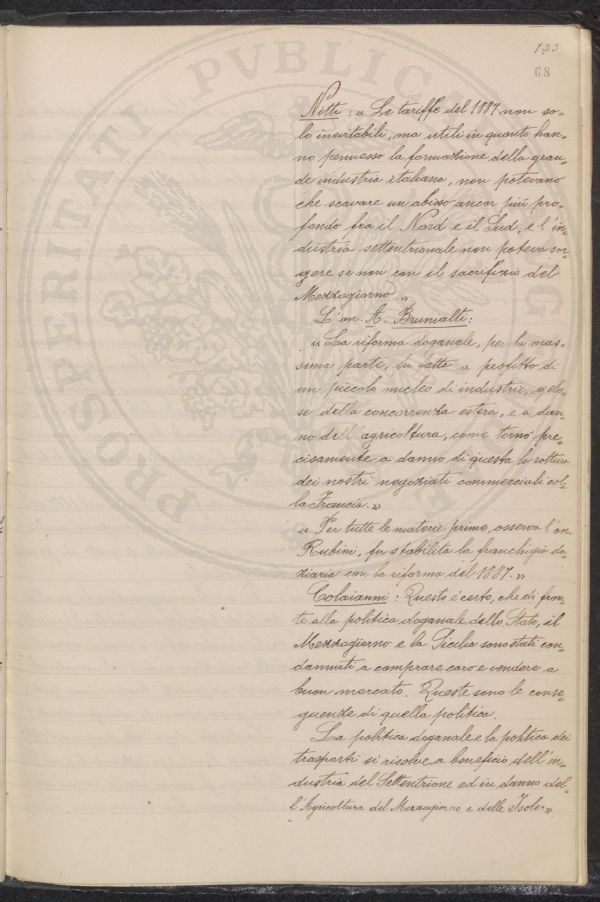 133
68
PROSPERITATI PVBLICAE
Nitti: « Le tariffe del 1887 non so=
lo inevitabili, ma utili in quanto han=
no permesso la formazione della gran=
de industria italiana, non potevano
che scavare un abisso ancor più pro=
fondo fra il Nord e il Sud, e l'in=
dustria settentrionale non poteva sor=
gere se non con il sacrifizio del
Mezzogiorno »
L'on. A. Brunialti:
« La riforma doganale, per la mas=
sima parte, fu fatta a profitto di
un piccolo nucleo di industrie, gelo=
se della concorrenza estera, e a dan=
no dell'agricoltura, come tornò pre=
cisamente a danno di questa la rottura
dei nostri negoziati commerciali col=
la Francia. »
« Per tutte le materie prime, osserva l'on.
Rubini, fu stabilita la franchigia da=
ziaria con la riforma del 1887. »
Colaianni: Questo è certo, che di fron=
te alla politica doganale dello Stato, il
Mezzogiorno e la Sicilia sono stati con=
dannati a comprare caro e vendere a
buon mercato. Queste sono le conse=
guenze di quella politica.
La politica doganale e la politica dei
trasporti si risolve a beneficio dell'in=
dustria del Settentrione ed in danno del=
l'Agricoltura del Mezzogiorno e delle Isole ».